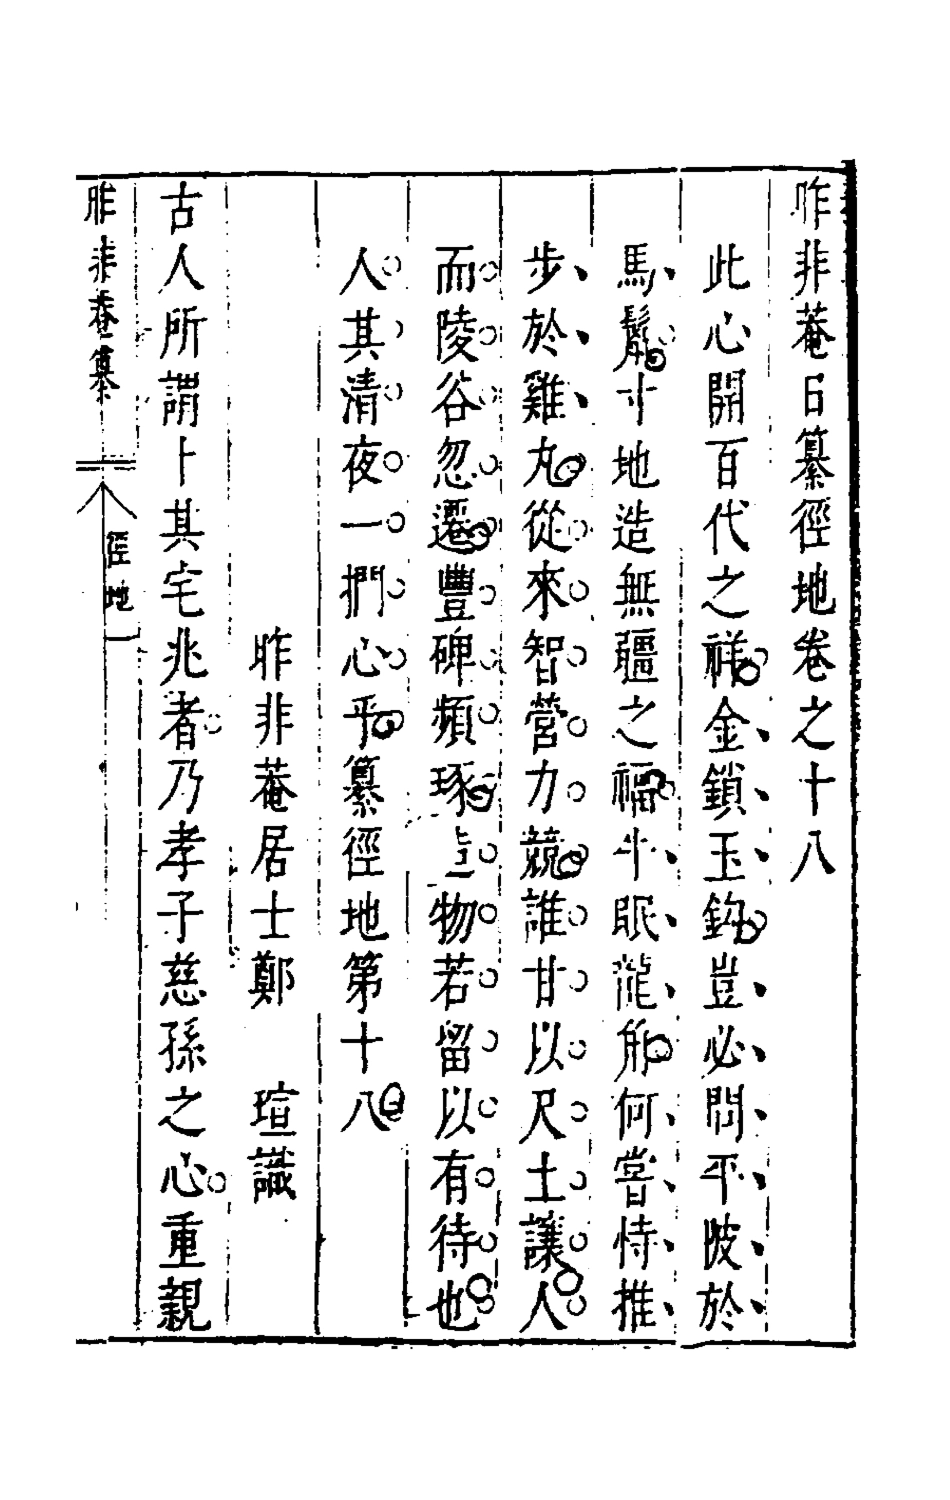 昨非菴日纂徑地卷之十八
此心開百代之祥金鎖玉鈎豈必問平陂於
馬鬣寸地造無疆之福牛眠龍角何嘗恃推
步於雞丸從來智營力競誰甘以尺土讓人
而陵谷忽遷豐碑頻琢物若留以有待也
人其清夜一捫心乎纂徑地第十八
昨非菴居士鄭 瑄識
古人所謂卜其宅兆者乃孝子慈孫之心重親
昨非菴纂
徑地
一